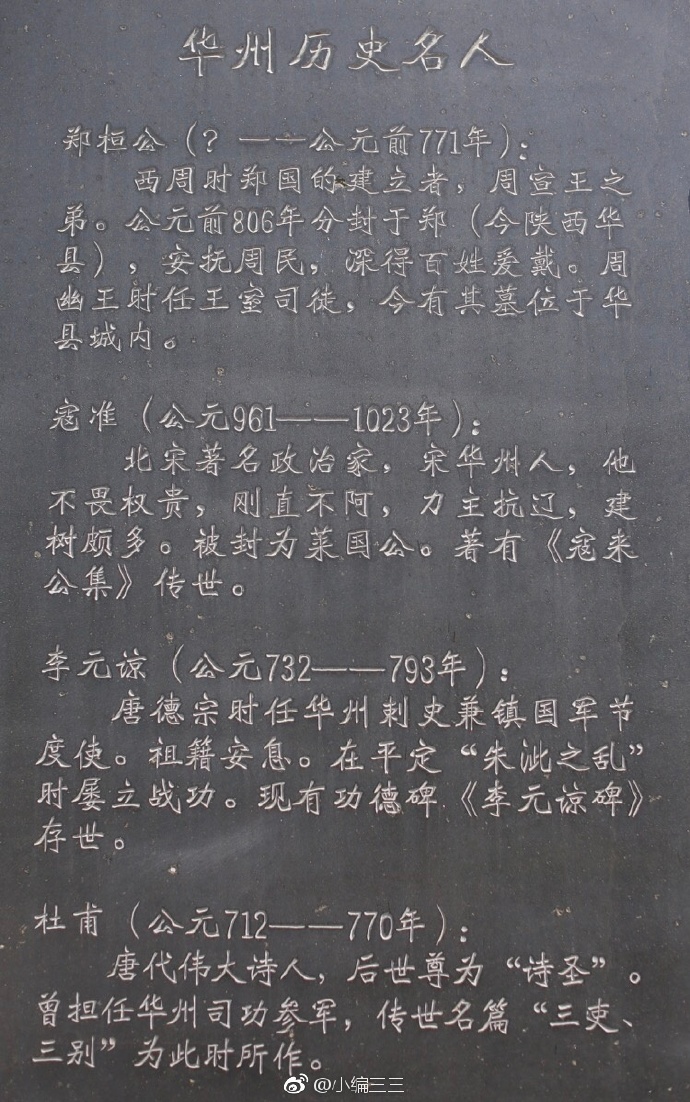 华州历史名人
郑桓公（？——公元前771年）：
西周时郑国的建立者，周宣王之
弟。公元前806年分封于郑（今陕西华
县），安抚周民，深得百姓爱戴。周
幽王时任王室司徒，今有其墓位于华
县城内。
寇准（公元961——1023年）：
北宋著名政治家，宋华州人，他
不畏权贵，刚直不阿，力主抗辽，建
树颇多。被封为莱国公。著有《寇来
公集》传世。
李元谅（公元732——793年）：
唐德宗时任华州刺史兼镇国军节
度使。祖籍安息。在平定“朱泚之乱”
时屡立战功。现有功德碑《李元谅碑》
存世。
杜甫（公元712——770年）：
唐代伟大诗人，后世尊为“诗圣”。
曾担任华州司功参军，传世名篇“三吏、
三别”为此时所作。
@小编三三